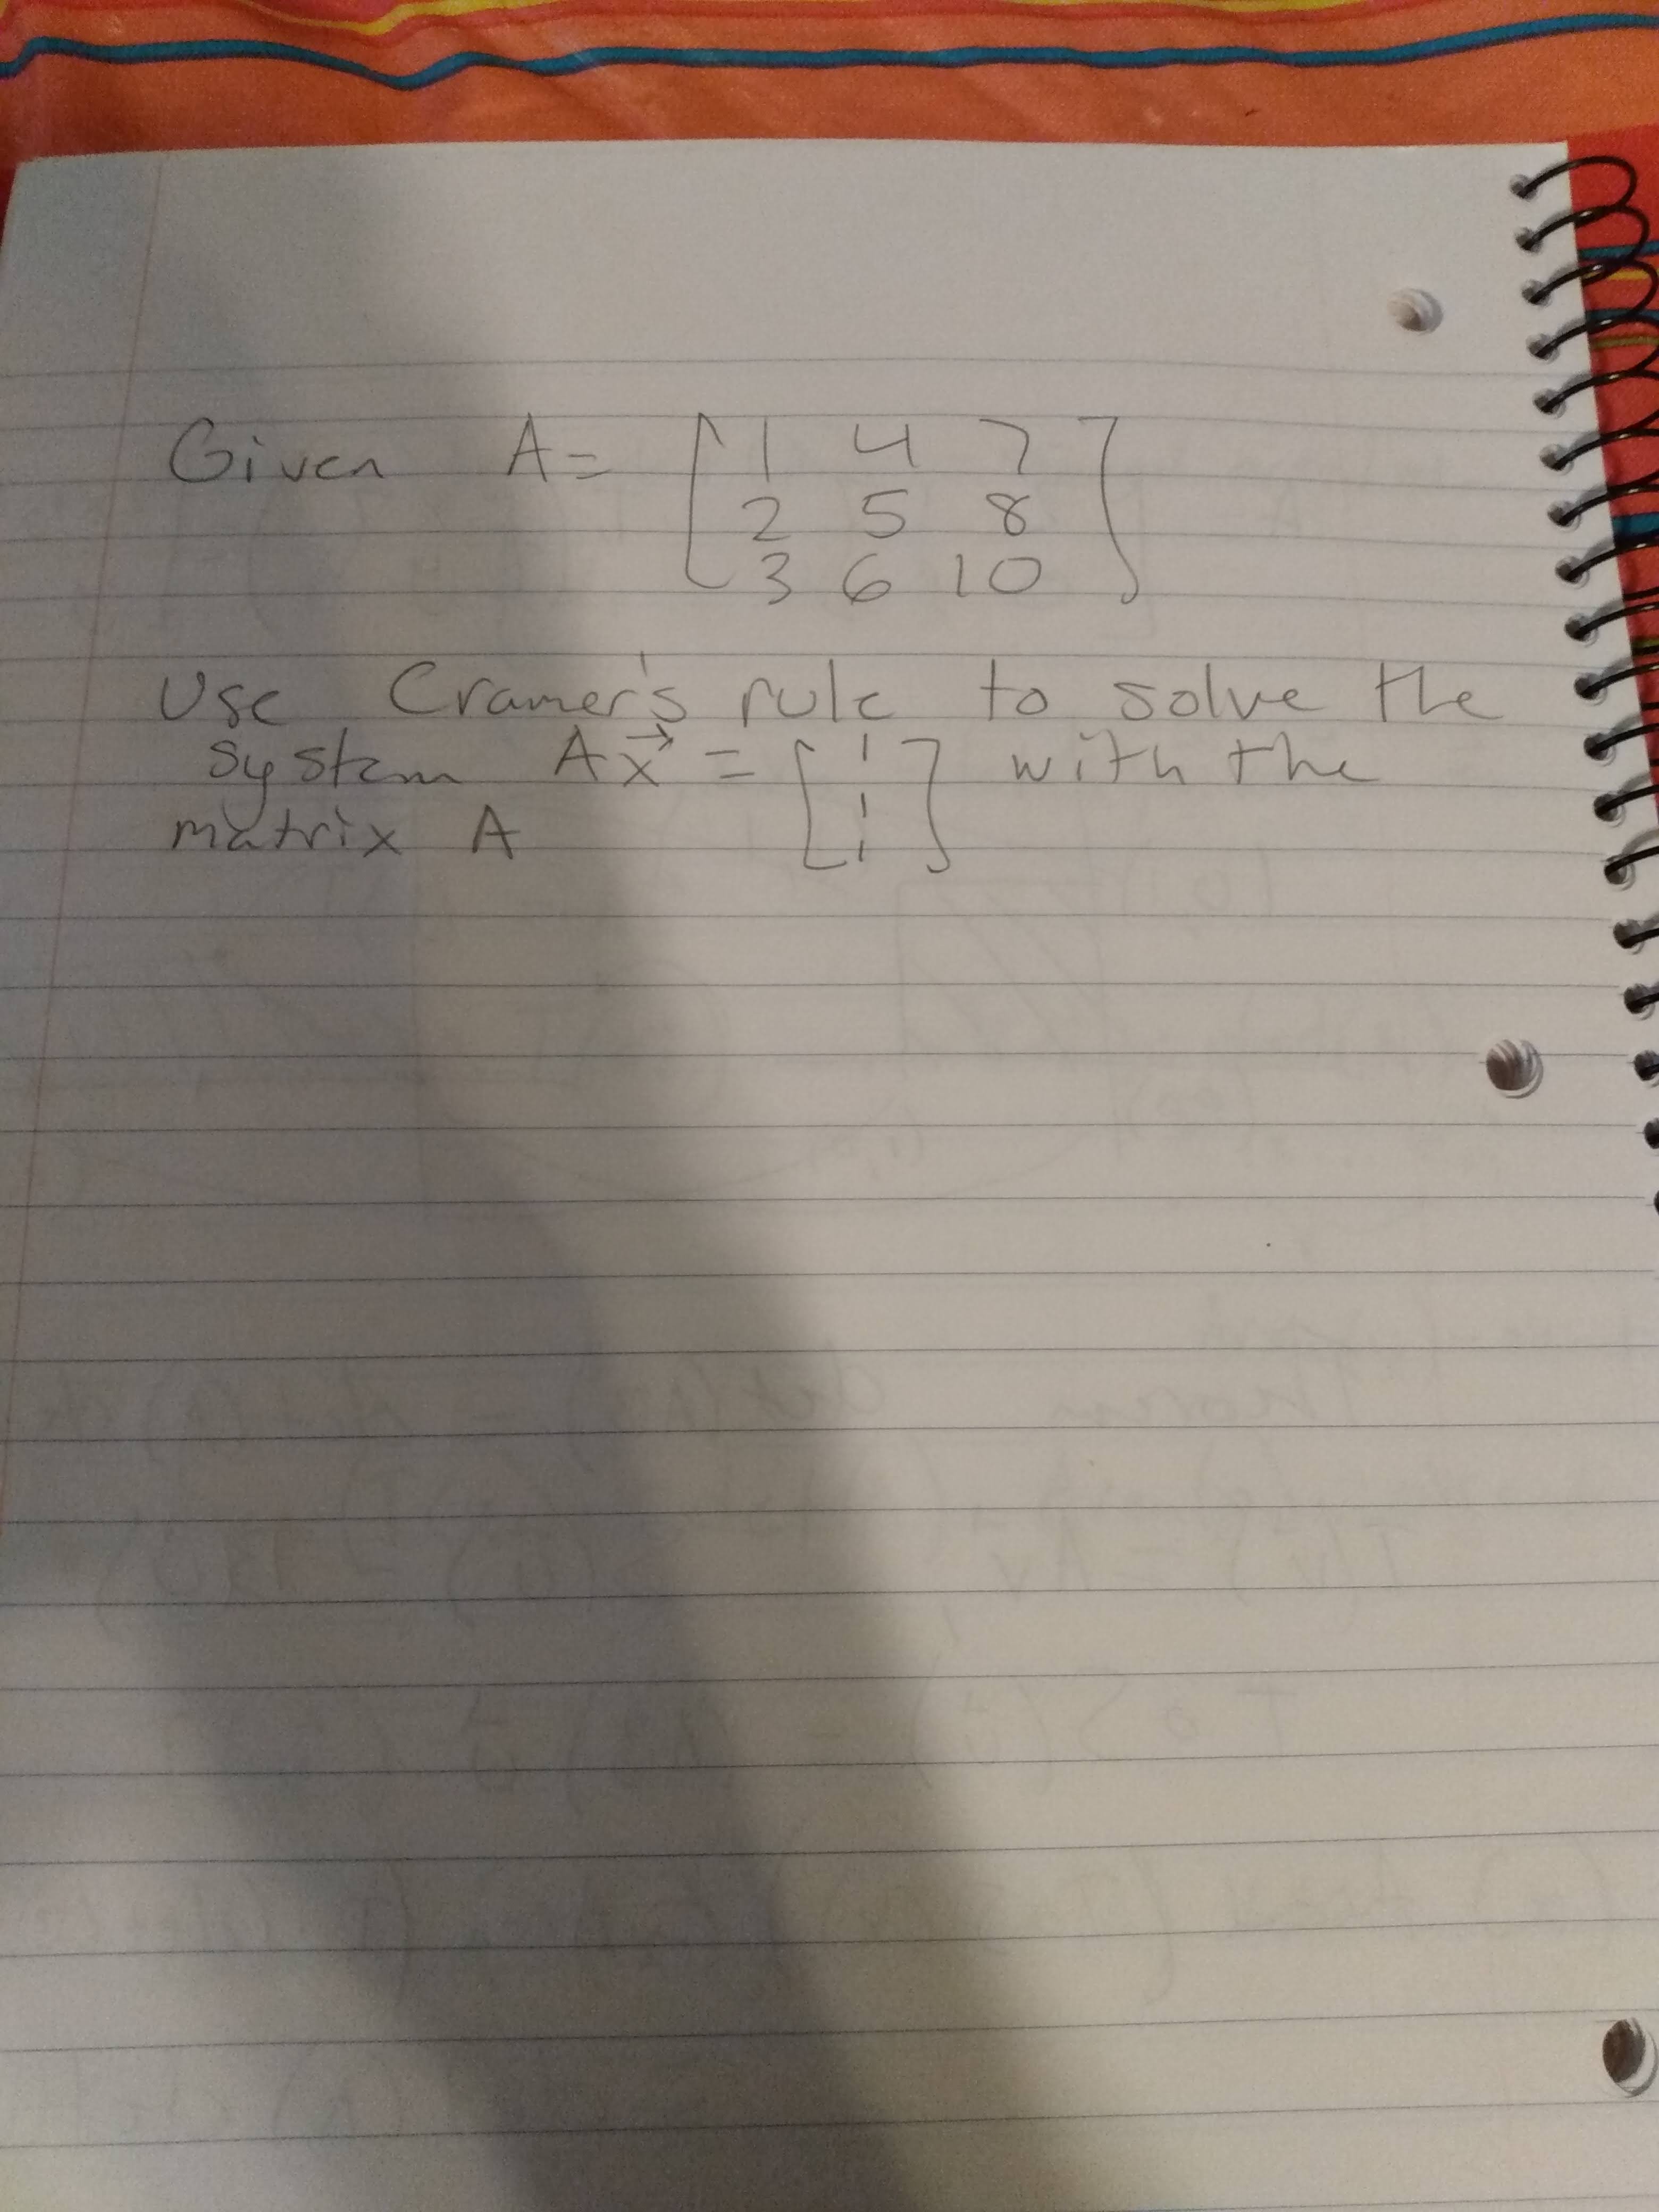 Given A = [1 4 7
2 5 8
3 6 10]
Use Cramer's rule to solve the
system Ax⃗ = [1 with the
matrix A 1
1]